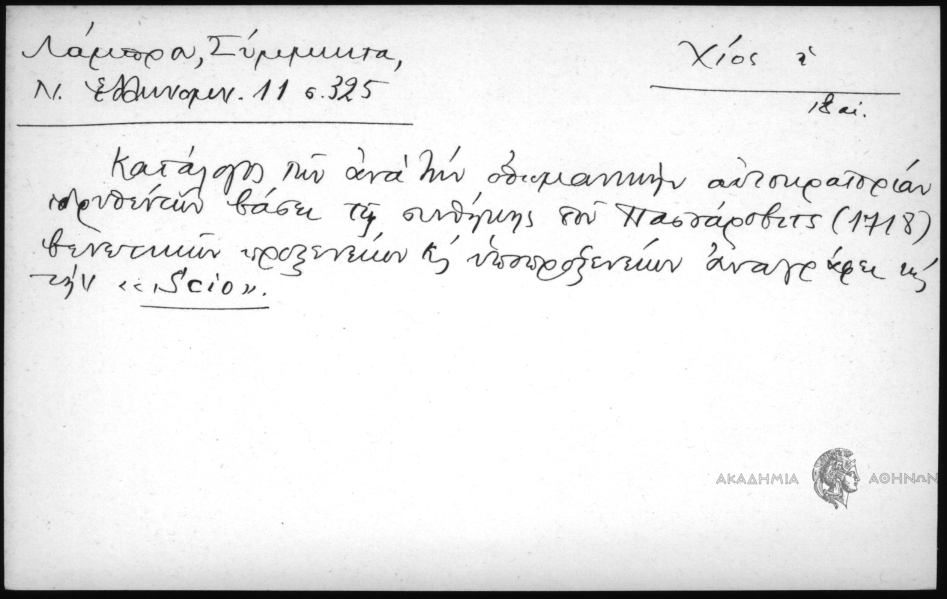 Λάμπρου, Σύμμικτα,
Ν. Ἑλληνομν. 11 σ. 325
Χίος ἡ
18 αἰ.
Κατάλογος τῶν ἀνὰ τὴν ὀθωμανικὴν αὐτοκρατορίαν
ἱδρυθέντων βάσει τῆς συνθήκης τοῦ Πασσάροβιτς (1718)
βενετικῶν προξενείων κ ὑποπροξενείων ἀναγράφει κ
τὴν «Scio».
ΑΚΑΔΗΜΙΑ ΑΘΗΝΩΝ